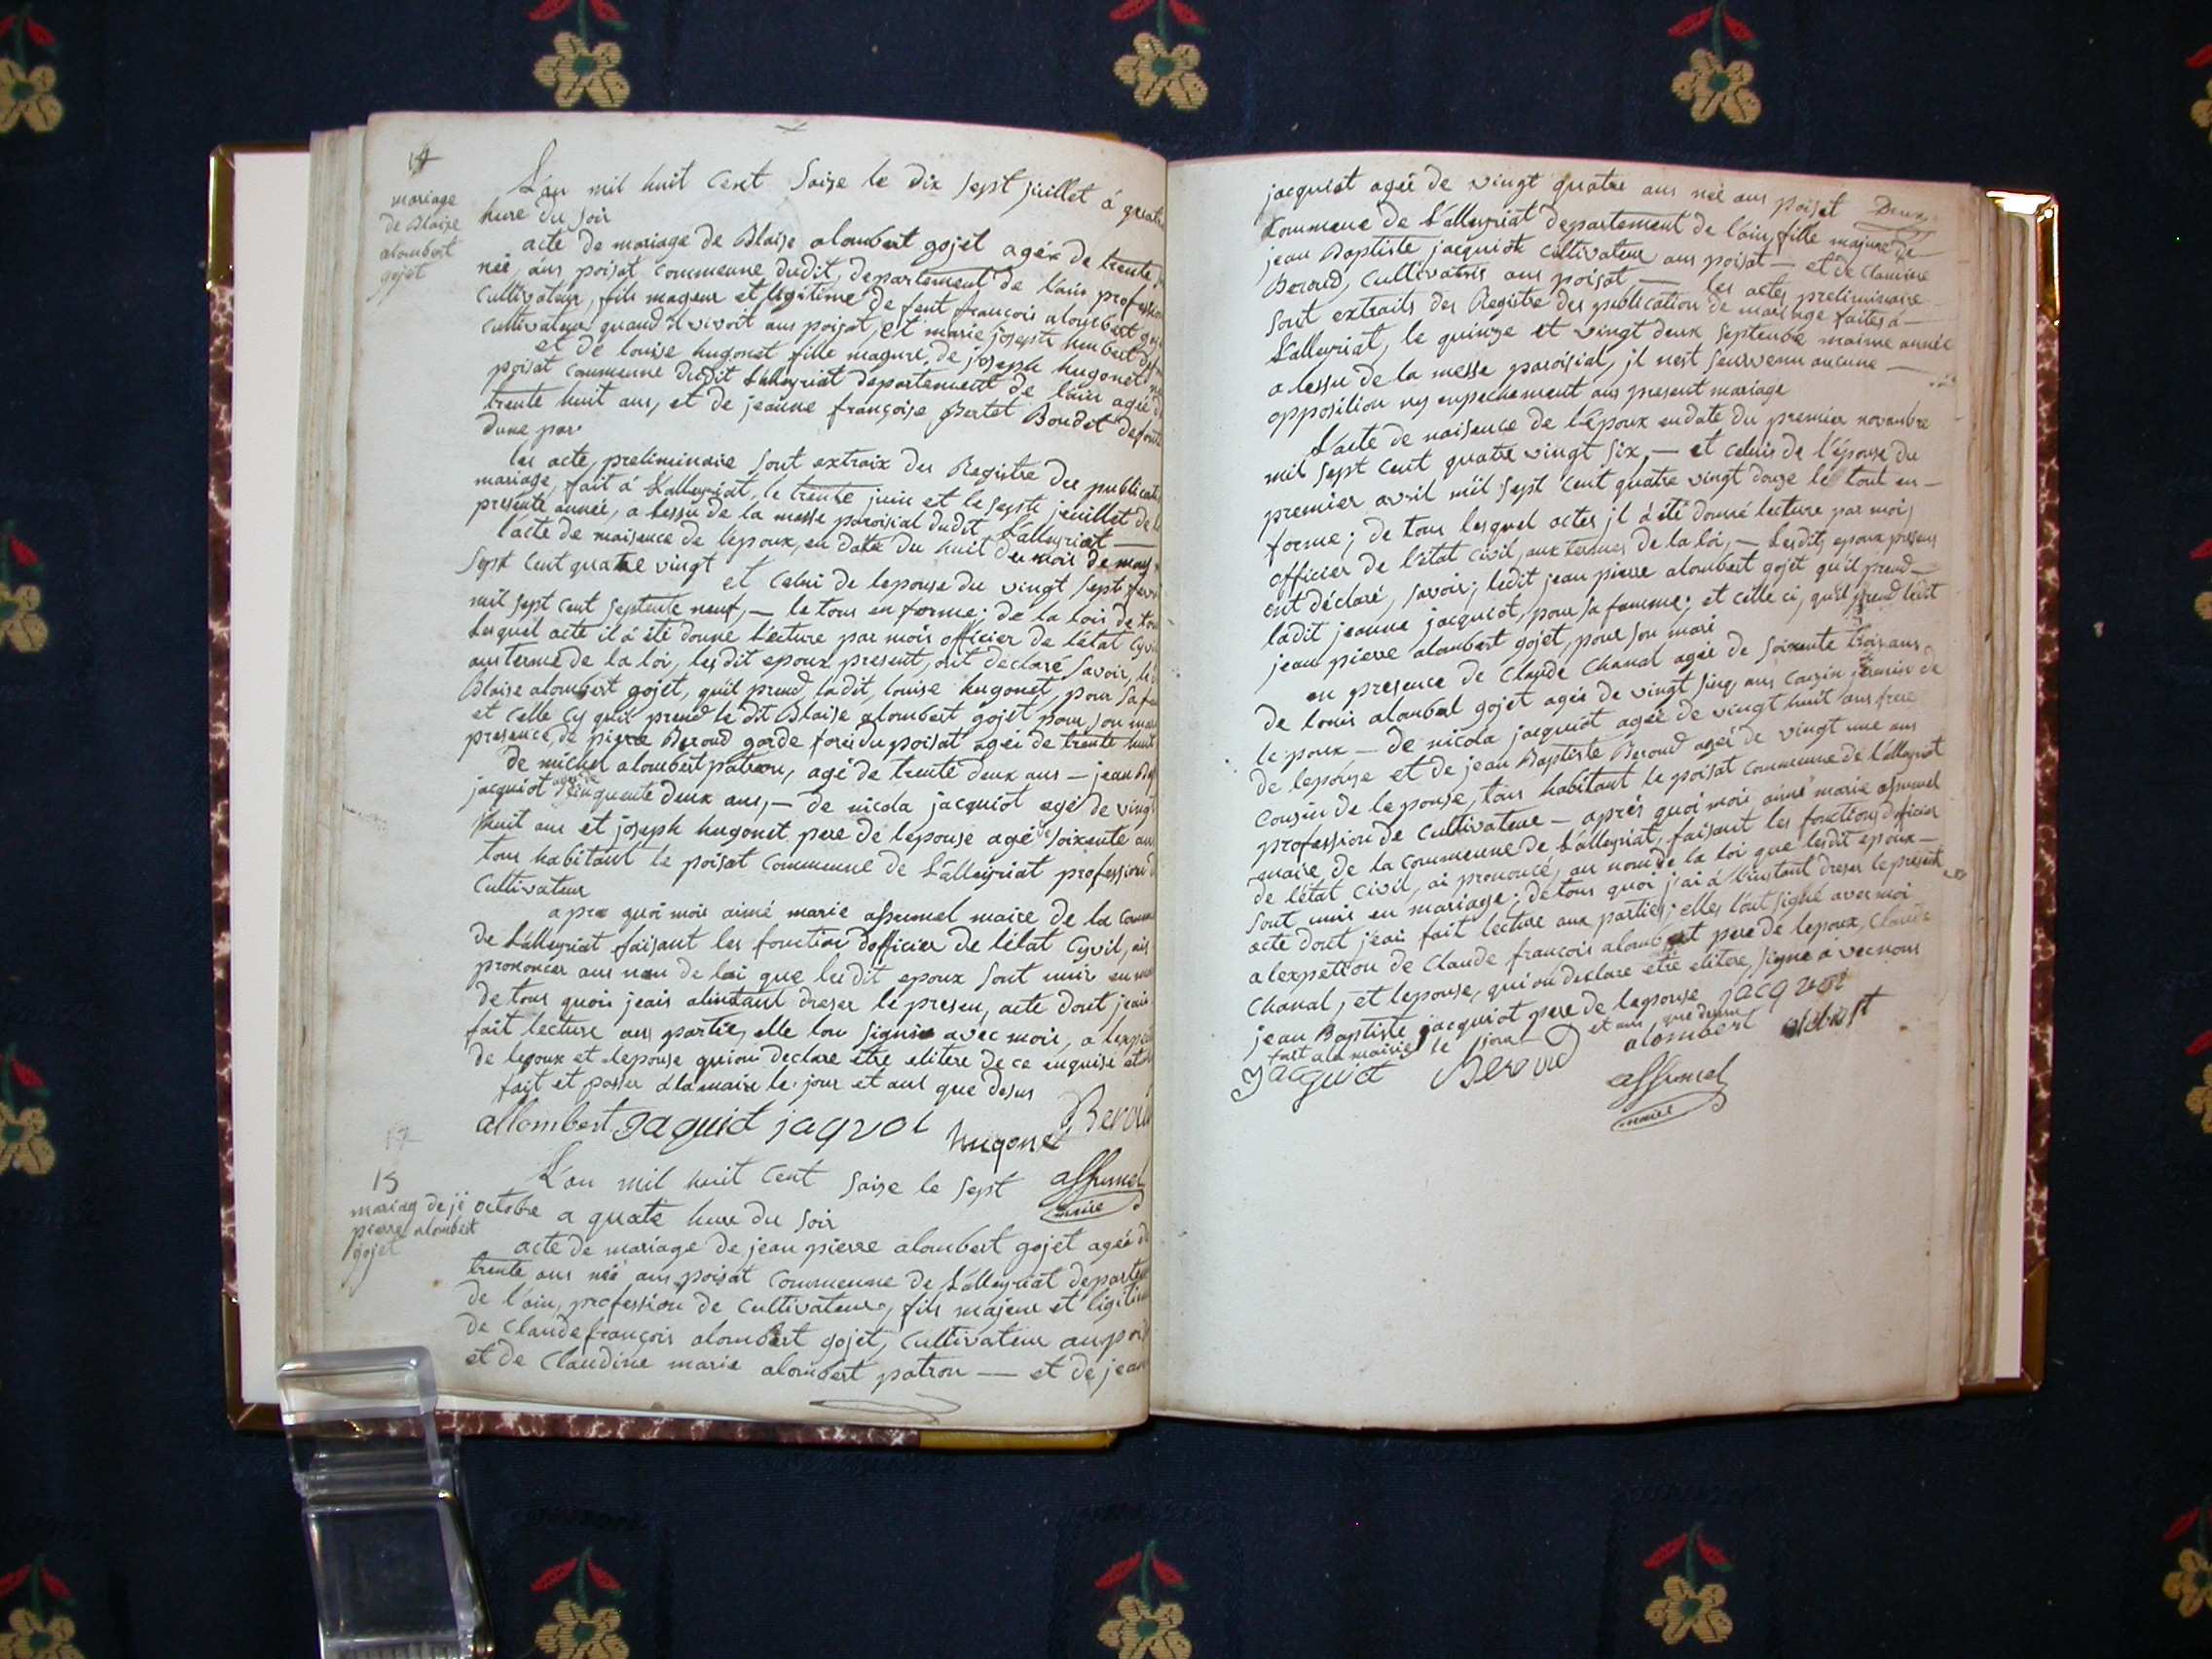 14
mariage
de Blaise
alombert
gojet
L'an mil huit Cent Saize le dix sept juillet á quatre
hure du soir
acte de mariage de Blaise alombert gojet agéé de trente
née, aus poisat Commeune dudit, departement de lain profession
Cultivateur, fils mageur et legitime de feut francois alombert goj
Cultivateur quand il vivoit aus poisat, et marie joseph humbert
et de louise hugonet fille magure, de joseph hugonet
poisat Commeune dudit Lalleyriat departement de lain agée d
trente huit ans, et de jeanne françoise Bertet Boudet defonte
dune par
les acte, preliminaire Sont extraix des Registre des publicat
mariage, fait á Lalleyriat, le trente juin et le septe jeuillet de l
présente année, a lessu de la messe paroisial dudit Lalleyriat —
l'acte de naisence de lepoux, en date du huit du mois de mars
Sept Cent quatre vingt et Celui de lepouse du vingt sept fevri
mil sept Cent Septente neuf, — le tous en forme; de la lois de tou
lesquel acte il á été donne lecture par mois officier de létat Cyvil
aus terme de la loi, lesdit epoux present, ont declaré Savoir, le d
Blaise alombert gojet, qu'il prend ladit, louise hugonet, pour Sa fa
et Celle Cy qu'il prend le dit Blaise alombert gojet pour, son mari
presence, de pierre Beroud garde foreidu poisat agéé de trente huit
de michel alombert patron, agé de trente deux ans — jean B
jacquiot agé Cinquente deux ans, — de nicola jacquiot agé de vingt
huit ans et joseph hugonet pere de lepouse agé de Soixente an
tous habitant le poisat Commeune de Lalleyriat profession d
Cultivateur
apre quoi mois aimé marie assumel maire de la Comm
de Lalleyriat faisant les fonction dofficier de létat Cyvil, ais
prononcer aus non de loi que lesdit epoux Sont unis en m
de tous quois jeais alinstant dreser le presen, acte dont jeais
fait lecture aus partie, elle lon Signé avec mois, a lexp
de lepoux et lepouse quion declare etre elitere de ce enquise et
fait et passer alamaire le jour et ans que desus
allombert Jaquiot jaqvot hugonet Beroud
assumel
maire
17
15
mariag de je
pierre alombert
gojet
L'an mil huit Cent Saize le Sept
octobre a quate hure du soir
acte de mariage de jean pierre alombert gojet agéé d
trente ans néé aus poisat Commeune de Lalleyriat departem
de l'ain, profession de Cultivateur, fils majeur et légitime
de Claude françois alombert gojet, Cultivateur au poi
et de Claudine marie alombert patron — et de jean
jacquiot agéé de vingt quatre ans néé aus poisat Deux
Commeune de Lalleyriat departement de l'ain, fille majure de
jean Baptiste jacquiot Cultivateur aus poisat — et de Claudine
Beroud, Cultivatris aus poisat — les actes preliminaire
Sont extraits des Registre des publication de mariage faites á —
Lalleyriat, le quinze et vingt deux Septembre maime année
a lessu de la messe paroisial, il nest Seurvenu aucune —
opposition ny enpechement aus present mariage
L'acte de naisence de l'epoux endate du premier novembre
mil Sept Cent quatre vingt six, — et Celuis de l'épouse du
premier avril mil Sept Cent quatre vingt douze le tout en —
forme; de tous lesquel actes il á été donné lecture par moi,
officier de l'état Civil, aux termes de la loi, — Lesdits epoux presens
ont déclaré, savoir; ledit jean pierre alombert gojet qu'il prend —
ladit jeanne jacquiot, pour Sa famme; et celle ci, qu'il prend ledit
jean pierre alombert gojet, pour son mari
en presence de Claude Chanal agéé de Soixente trois ans
de louis alombal gojet agéé de vingt Sinq ans Cousin jermin de
lepoux — de nicola jacquiot agéé de vingt huit ans frere
de lepouse et de jean Baptiste Beroud agéé de vingt une ans
Cousin de lepouse, tous habitant le poisat Commeune de Lalleyriat
profession de Cultivateur — aprés quoi mois aimé marie assumel
maire de la Commeune de Lalleyriat, faisant les fonctions d'officier
de létat Civil, ai prononcé, au nom de la loi que lesdit epoux —
Sont unis en mariage; de tous quoi j'ai á linstant dreser le présent
acte dont jeai fait lecture aux parties; elles l'ont signé avec moi
a lexpettion de Claude françois alombert pere de lepoux, Claude
Chanal, et lepouse, qui on declare etre elitere, Signe á vec nous
jean Baptiste jacquiot pere de lepouse jacqvot
fait ala mairie le jour et ans que desus
Jacquiot Beroud alombert alombert
assumel
maire